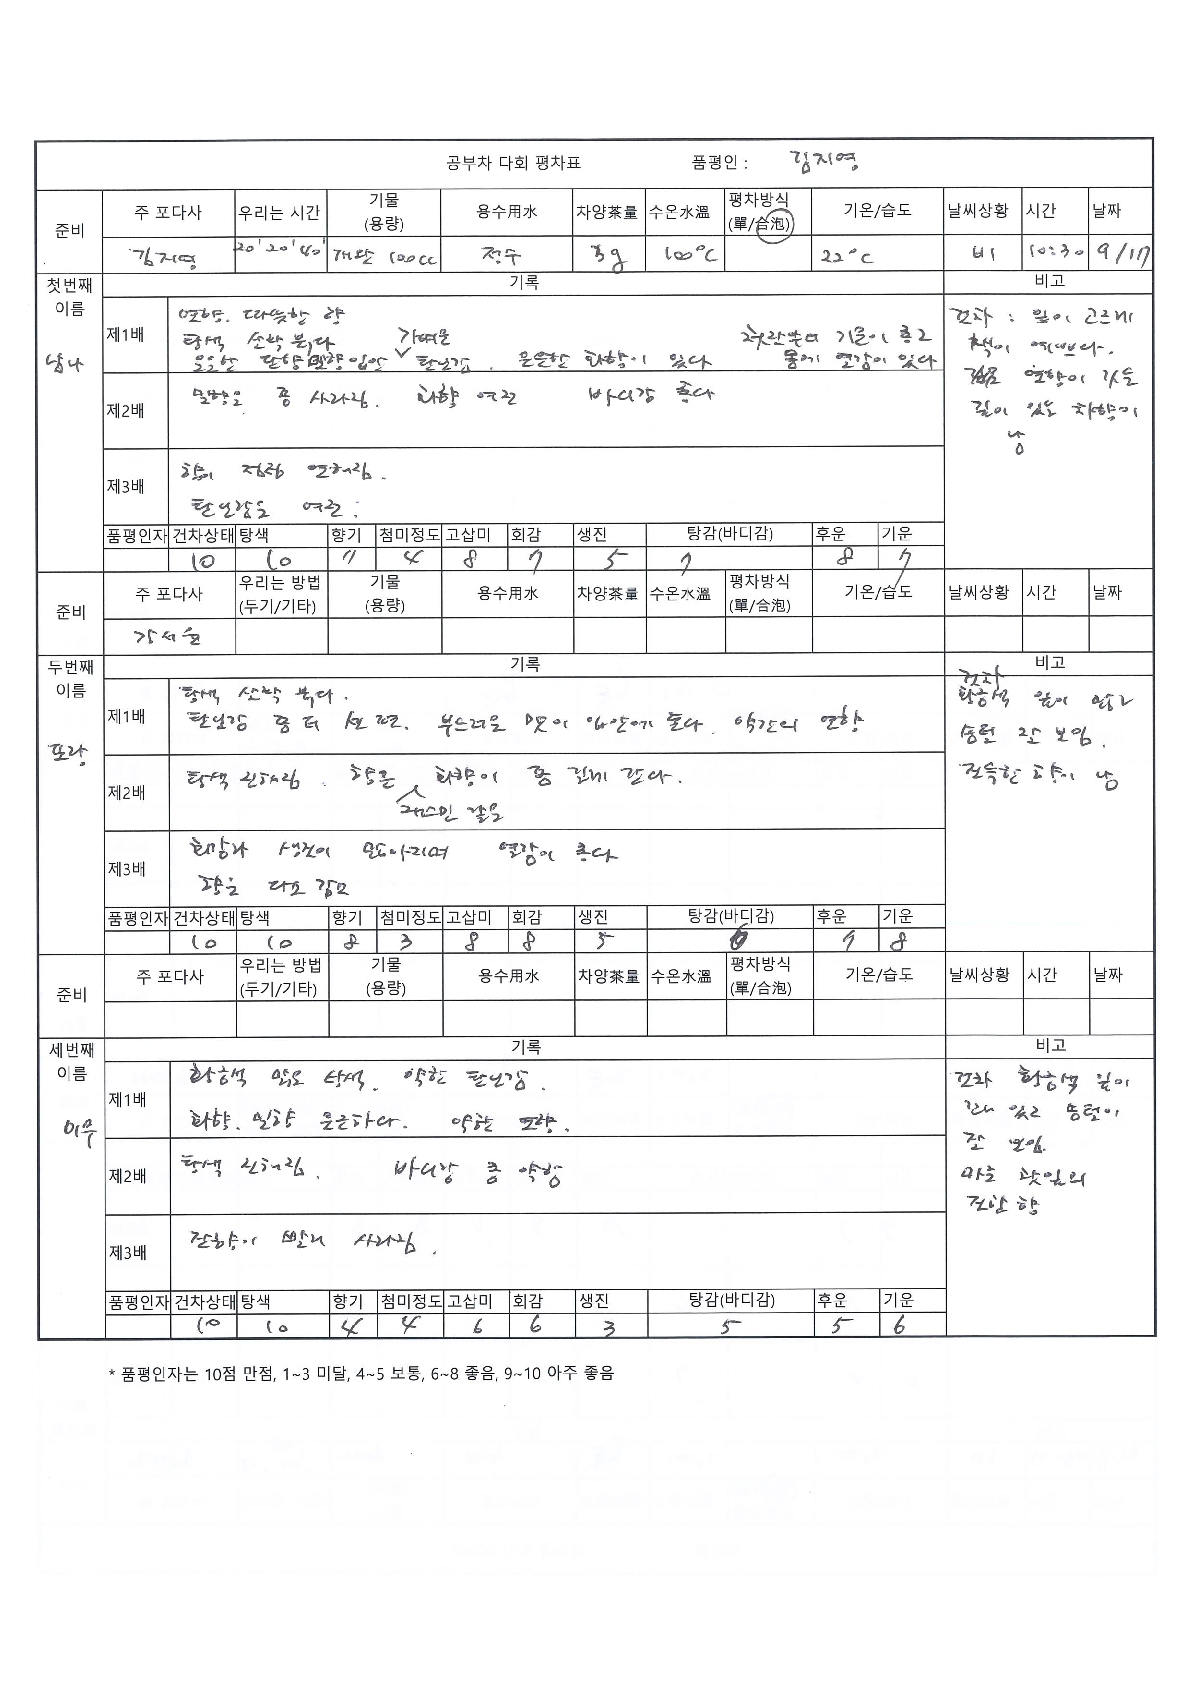 공부차 다회 평차표 품평인 : 김지영
준비 주 포다사 우리는 시간 기물 (용량) 용수用水 차양茶量 수온水溫 평차방식 (單/合泡) 기온/습도 날씨상황 시간 날짜
김지영 20' 20' 40' 개완 100cc 정수 3g 100°C 22°C 비 10:30 9/17
첫번째 이름 기록 비고
남나
제1배 연향. 따뜻한 향
탕색 살짝 붉다 가벼운 첫잔부터 기운이 좋고
탄닌감. 은은한 화향이 있다 몸에 열감이 있다
건차 : 잎이 고르게
색이 예쁘다.
연향이 가득
깊이 있는 차향이
남
제2배 밀향은 좀 사라짐. 화향 여전 바디감 좋다
제3배 향이 점점 연해짐.
탄닌감은 여전.
품평인자 건차상태 탕색 향기 첨미정도 고삽미 회감 생진 탕감(바디감) 후운 기운
10 10 7 4 8 7 5 7 8 7
준비 주 포다사 우리는 방법 (두기/기타) 기물 (용량) 용수用水 차양茶量 수온水溫 평차방식 (單/合泡) 기온/습도 날씨상황 시간 날짜
강서윤
두번째 이름 기록 비고
포랑
제1배 탕색 살짝 붉다.
탄닌감 좀 더 센 편. 부드러운 맛이 입안에 돈다. 약간의 연향
건차
황금색 잎이 있고
솜털 잘 보임.
진득한 향이 남
제2배 탕색 진해짐. 향은 화향이 좀 길게 간다.
재스민 같은
제3배 회감과 생진이 모아지며 열감이 좋다
향은 다소 감소
품평인자 건차상태 탕색 향기 첨미정도 고삽미 회감 생진 탕감(바디감) 후운 기운
10 10 8 3 8 8 5 6 7 8
준비 주 포다사 우리는 방법 (두기/기타) 기물 (용량) 용수用水 차양茶量 수온水溫 평차방식 (單/合泡) 기온/습도 날씨상황 시간 날짜
세번째 이름 기록 비고
이무
제1배 황금색 맑은 탕색. 약한 탄닌감.
화향. 밀향 은근하다. 약한 연향.
건차 황금색 잎이
꽤 있고 솜털이
잘 보임.
마른 과일의
진한 향
제2배 탕색 진해짐. 바디감 좀 약함
제3배 잔향이 빨리 사라짐.
품평인자 건차상태 탕색 향기 첨미정도 고삽미 회감 생진 탕감(바디감) 후운 기운
10 10 4 4 6 6 3 5 5 6
* 품평인자는 10점 만점, 1~3 미달, 4~5 보통, 6~8 좋음, 9~10 아주 좋음